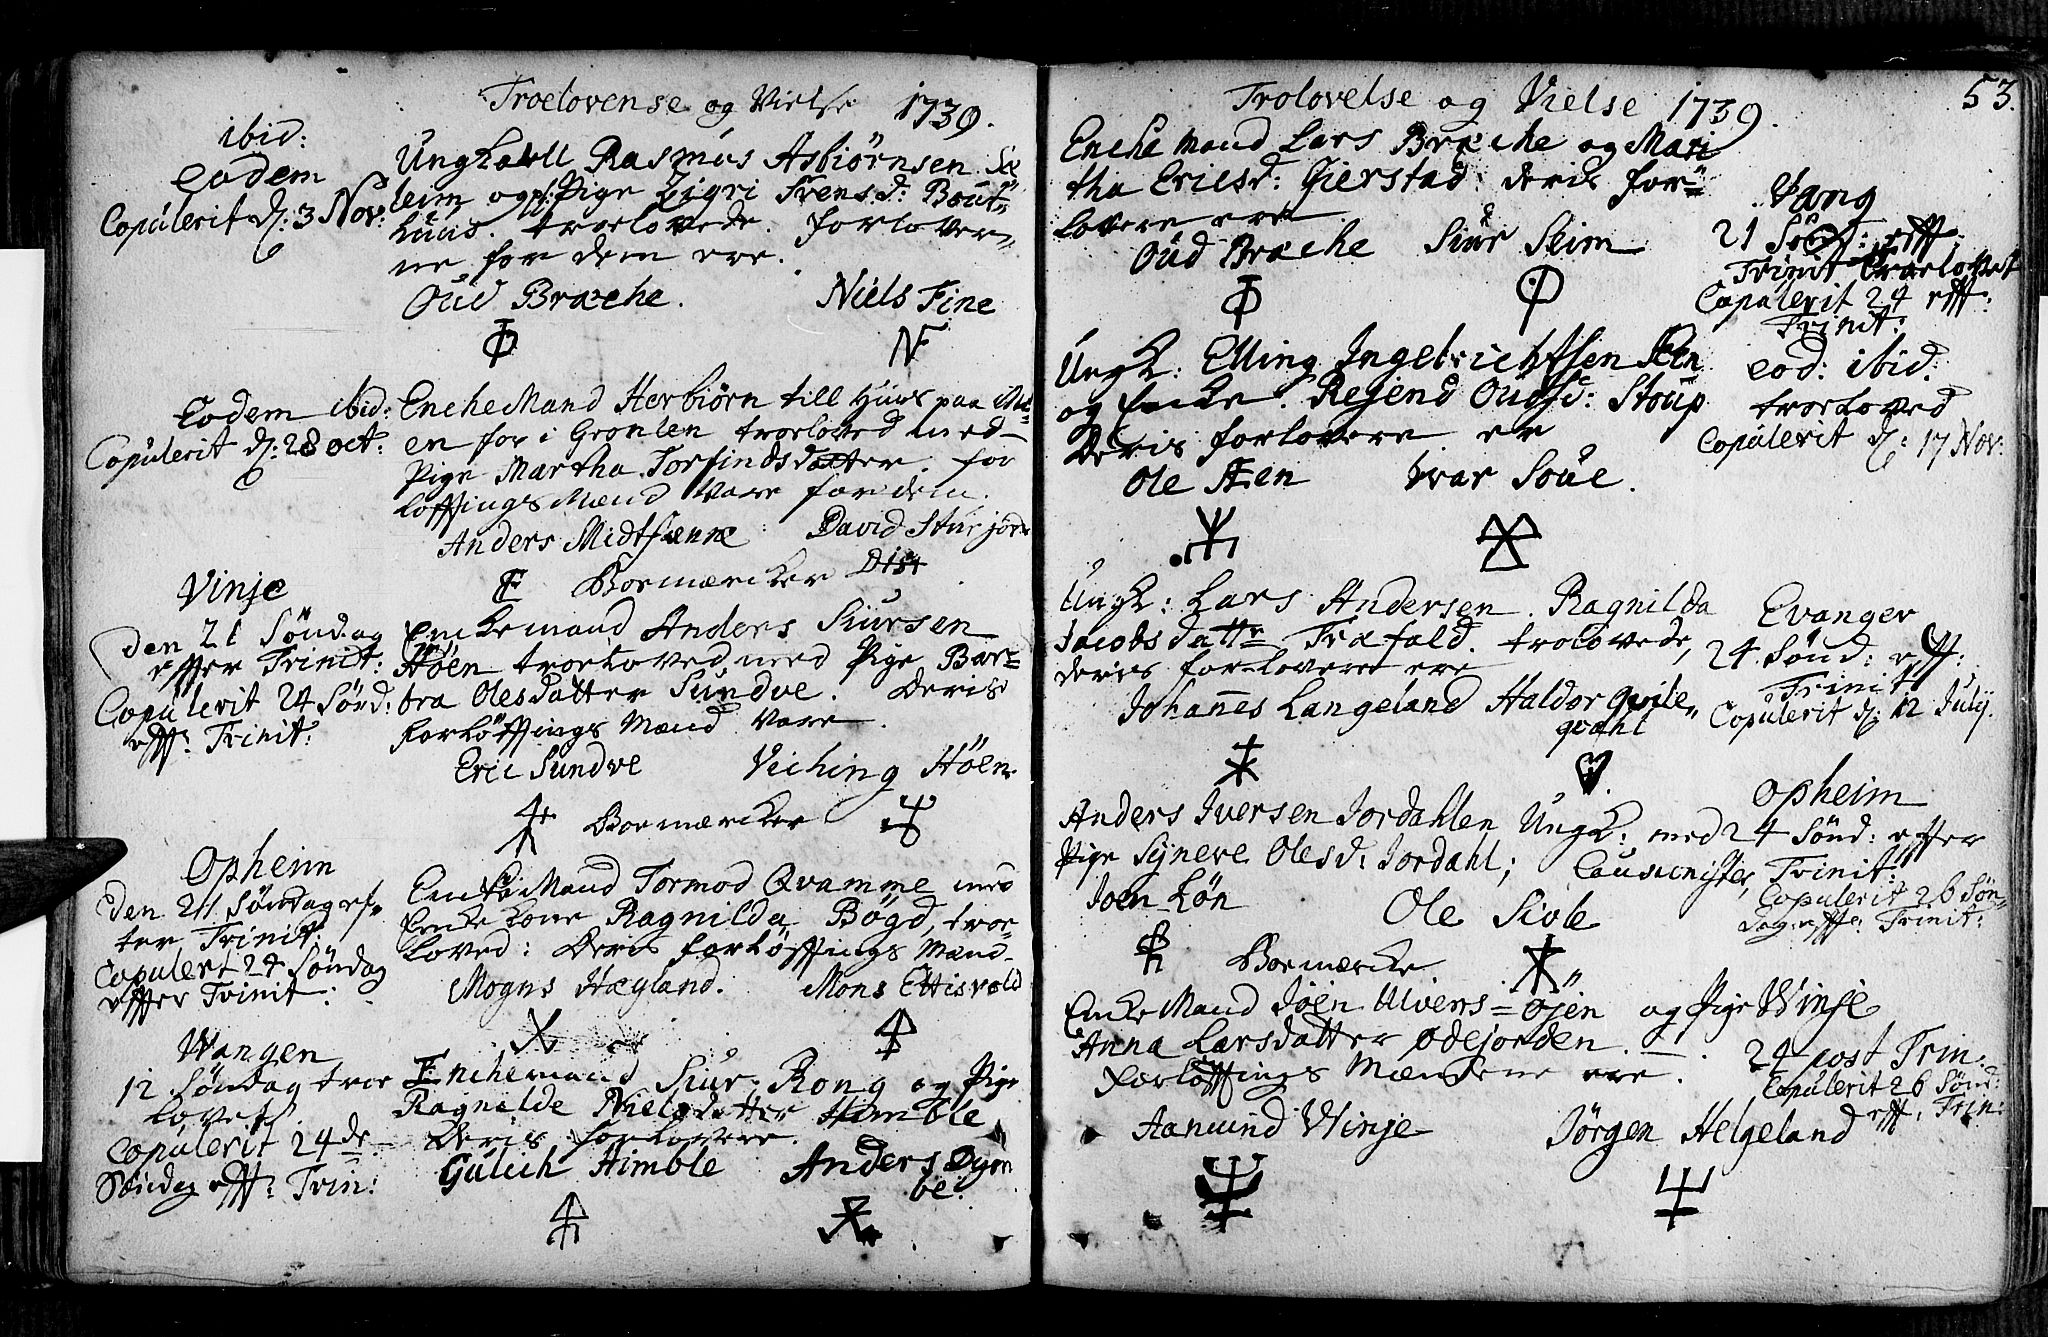 Troelovense og Vielse 1739.
ibid:
eodem
Copulerit d: 3 Nov:
Ungkarll Rasmus Asbiörnsen Se
leim og Pige Zigri Svensd: Bout=
huus. troelovede. forlover=
ne for dem ere.
Oud Bræche. Niels Fine
NF
Eodem ibid:
Copulerit d: 28 oct:
Encke Mand Herbiörn till Huus paa
en for i Gronlen troeloved med
Pige Martha Torfindsdatter. for
löffings Mænd vare for dem.
Anders Midtfænne David Sturjord
Boemærcker Dist
Vinje
Den 21 Söndag
effter Trinit:
Copulerit 24 Sönd:
efft: Trinit:
Enckemand Anders Siursen
Höen troeloved med Pige Bar=
bra Olesdatter Sundve. Deris
forlöffings Mænd vare
Eric Sundve Viching Höen
Boemærcker
Opheim
Den 21 Söndag ef=
ter Trinit:
Copulert 24 Söndag
effter Trinit:
Encke Mand Tormod Qvamme med
Encke Kone Ragnilda Bögd, troe=
loved: Deris forlöffings Mænd
Mogns Hægland. Mons Ettisvold
Wangen
12 Söndag troe
lovet.
Copulerit 24de
Söndag efft: Trin:
Enchemand Siur Rong og Pige
Ragnilde Nielsdatter Himble
Deris forlovere.
Gulich Himble Anders Dyr
be:
Trolovelse og Vielse 1739.
53.
Enche Mand Lars Bræche og Mari
tha Ericsd: Gierstad: deris for=
lovere ere
Oud Bræche Siur Seim
Vang
21 Sönd: efft
Trinit troelovet
Copulerit 24 efft:
Trinit:
Ungk: Elling Ingebrichtsen Æen
og Encke. Regend Oudsd: Stoup
Deris forlovere er
Ole Æen Ivar Soue.
eod: ibid:
troeloved
Copulerit d: 17 Nov:
Ungk: Lars Andersen. Ragnilda
Jacobs datter Træfald. trolovede,
deris forlovere ere
Johannes Langeland Haldor Qvile=
qvahl
Evanger
24 Sönd: efft:
Trinit
Copulerit d: 12 Julij.
Anders Iversen Jordahlen Ungk: med
Pige Syneve Olesd: Jordahl; Causionister
Joen Lön Ole Sivle
Boemærcke
Opheim
24 Sönd: effter
Trinit:
Copulerit 26 Sön=
dag efft: Trinit:
Encke Mand Jöen Ulvens=öjen og Pige
Anna Larsdatter Ødejorden.
Forlöffings Mændene ere.
Aamund Winje Jörgen Helgeland
Winje
24 post Trin.
Copulerit 26 Sönd:
efft: Trin: